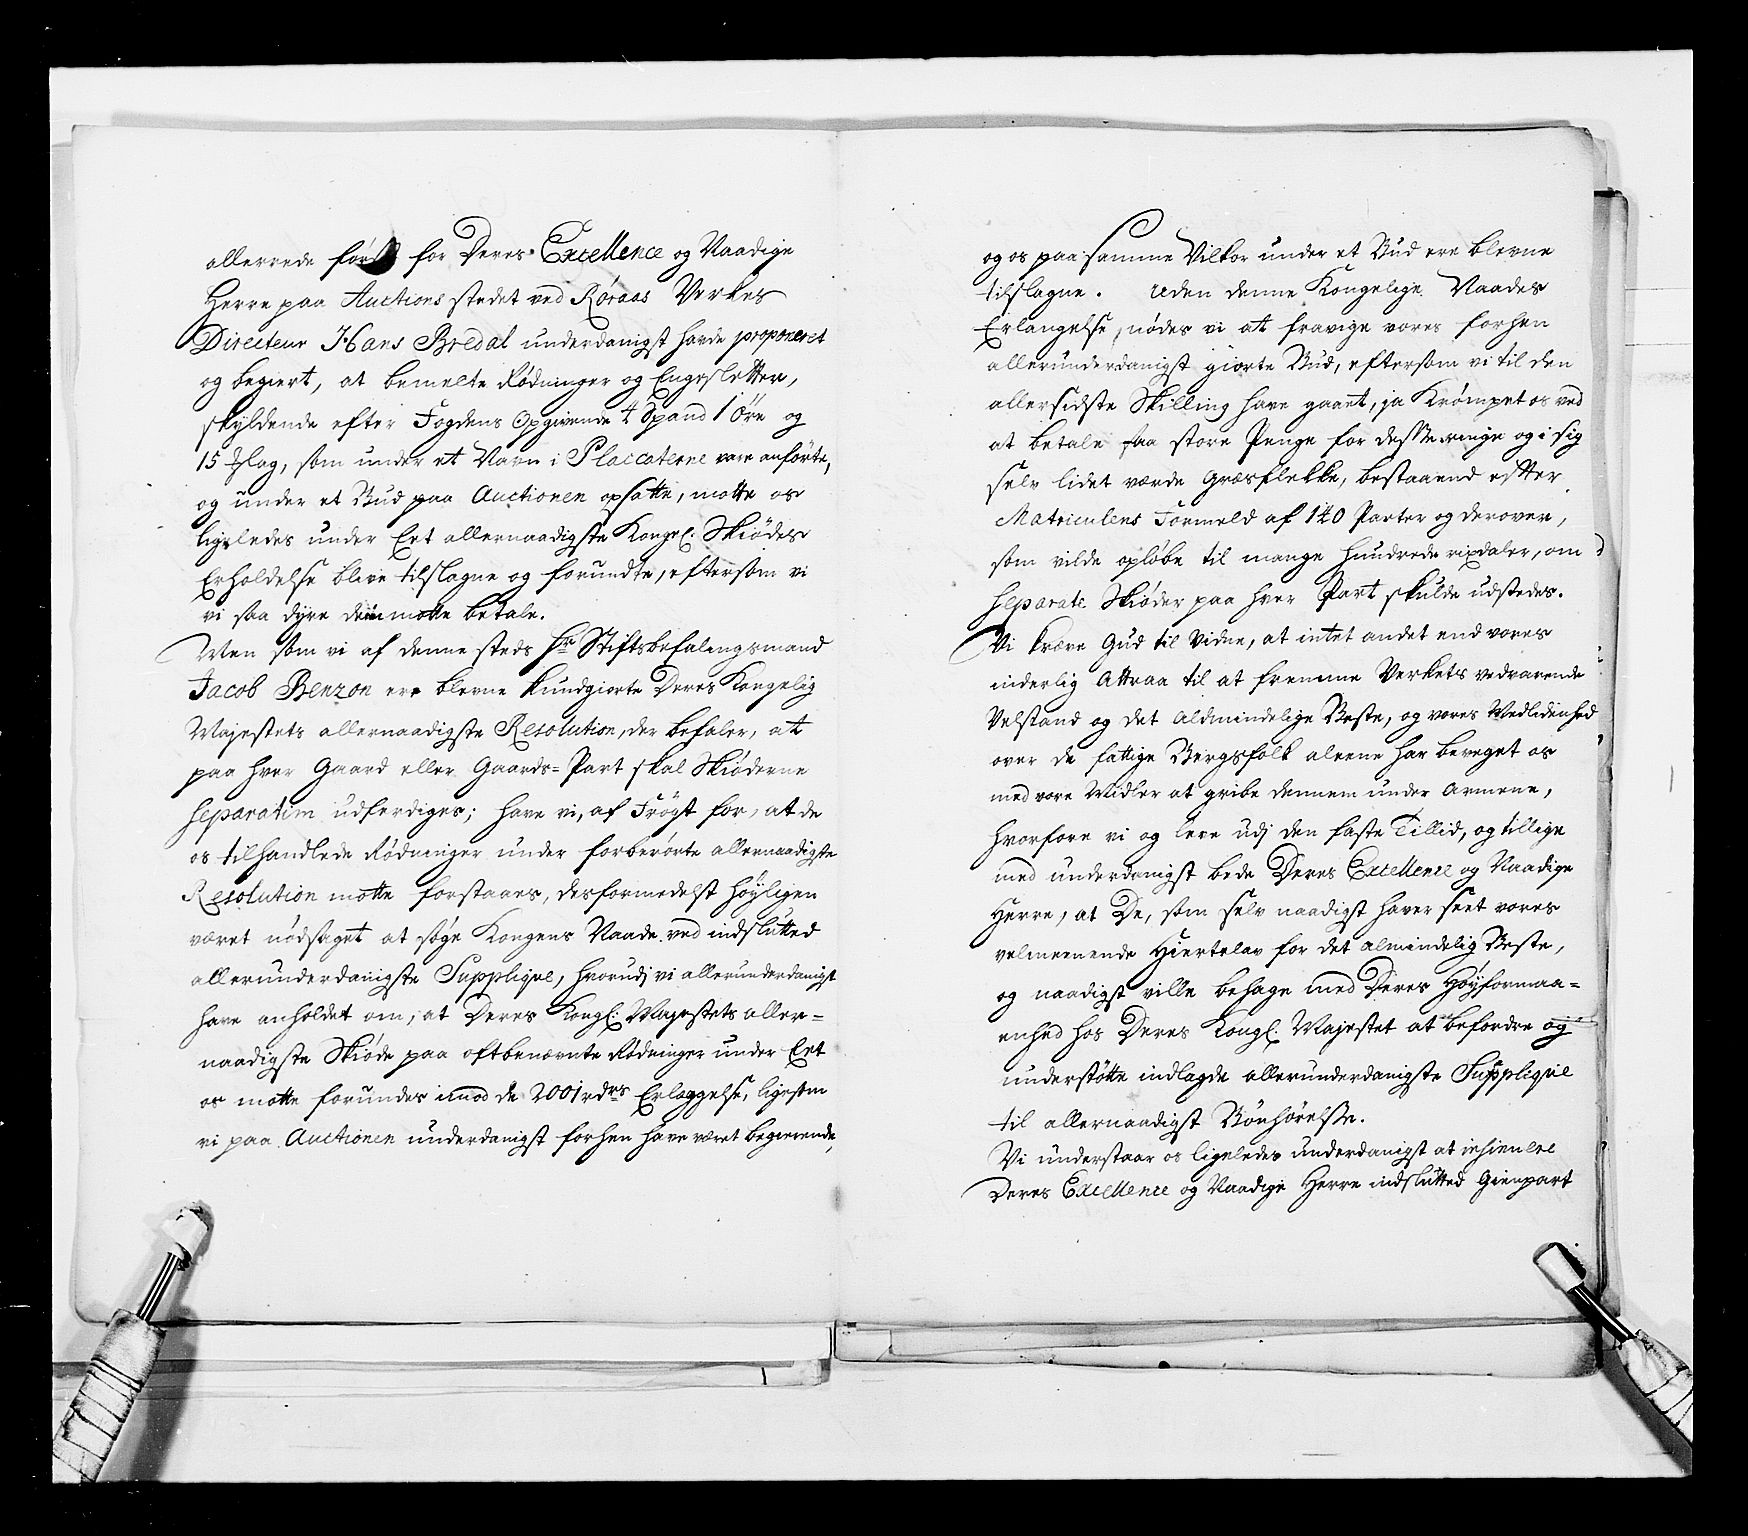 allerrede først for Deres Excellence og Naadige
Herre paa Auctions stedet ved Røraas Verkes
Directeur Hans Bredal underdanigst havde proponeret
og begiert, at bemelte Rødninger og Engesletter,
skyldende efter Fogdens Opgivende 4 Spand 1 Öre og
15 ßlag, som under et Navn i Placcaterne vare anförte,
og under et Bud paa Auctionen opsatte, motte os
ligeledes under Eet allernaadigste Kongel: Skiödes
Erholdelse blive tilslagne og forundte, eftersom vi
vi saa dyre dem motte betale.
Men som vi af denne steds Hr Stiftsbefalingsmand
Jacob Benzon ere blevne kundgiorte Deres Kongelig
Majestets allernaadigste Resolution, der befaler, at
paa hver Gaard eller Gaards-Part skal Skiöderne
separatim udferdiges; have vi, af Frögt for, at de
os tilhandlede Rödninger under forberörte allernaadigste
Resolution motte forstaaes, desformedelst höyligen
været nödsaget at söge Kongens Naade ved indslutted
allerunderdanigste Supplique, hvorudj vi allerunderdanigst
have anholdet om, at Deres Kongl: Majestets aller-
naadigste Skiöde paa oftbenævnte Rödninger under Eet
os motte forundes imod de 2001 rdrs Erlæggelse, ligesom
vi paa Auctionen underdanigst forhen have været begierende,
og os paa samme Vilkor under et Bud ere blevne
tilslagne. Uden denne Kongelige Naades
Erlangelse, nödes vi at fravige vores forhen
allerunderdanigst giorte Bud, eftersom vi til den
allersidste Skilling have gaaet, ja Krömpet os ved
at betale saa store Penge for desse ringe og i sig
selv lidet værde Græsflekke, bestaaend efter
Matriculens Formeld af 140 Parter og derover,
som vilde oplöbe til mange hundrede rixdaler, om
separate Skiöder paa hver Part skulde udstedes.
Vi kræve Gud til Vidne, at intet andet end vores
inderlig Attraa til at fremme Verkets vedvarende
Velstand og det Aldmindelige Beste, og vores Medlidenhed
over de fattige Bergsfolk aleene har beveget os
med vore Midler at gribe dennem under Armene,
hvorfore vi og leve udj den faste Tillid, og tillige
med underdanigst bede Deres Excellence og Naadige
Herre, at De, som selv naadigst haver seet vores
velmeenende Hiertelav for det almindelig Beste,
og naadigst ville behage med Deres Höyformaa-
enhed hos Deres Kongl. Majestet at befordre og
understötte indlagde allerunderdanigste Supplique
til allernaadigst Bönhörelse.
Vi understaar os ligeledes underdanigst at insinuere
Deres Excellence og Naadige Herre indslutted Gienpart